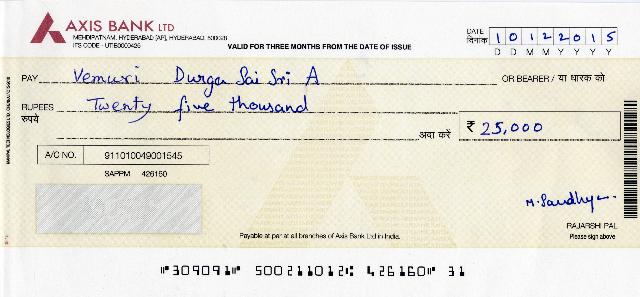 AXIS BANK LTD
MEHDIPATNAM, HYDERABAD [AP], HYDERABAD, 500028
IFS CODE - UTIB0000426
VALID FOR THREE MONTHS FROM THE DATE OF ISSUE
DATE
दिनांक 1 0 1 2 2 0 1 5
D D M M Y Y Y Y
PAY Vemuri Durga Sai Sri A OR BEARER / या धारक को
RUPEES Twenty five thousand
रुपये अदा करें ₹ 25,000
A/C NO. 911010049001545
SAPPM 426160
M. Sandhya
RAJARSHI PAL
Payable at par at all branches of Axis Bank Ltd in India. Please sign above
⑈309091⑈ 500211012⑆ 426160⑈ 31